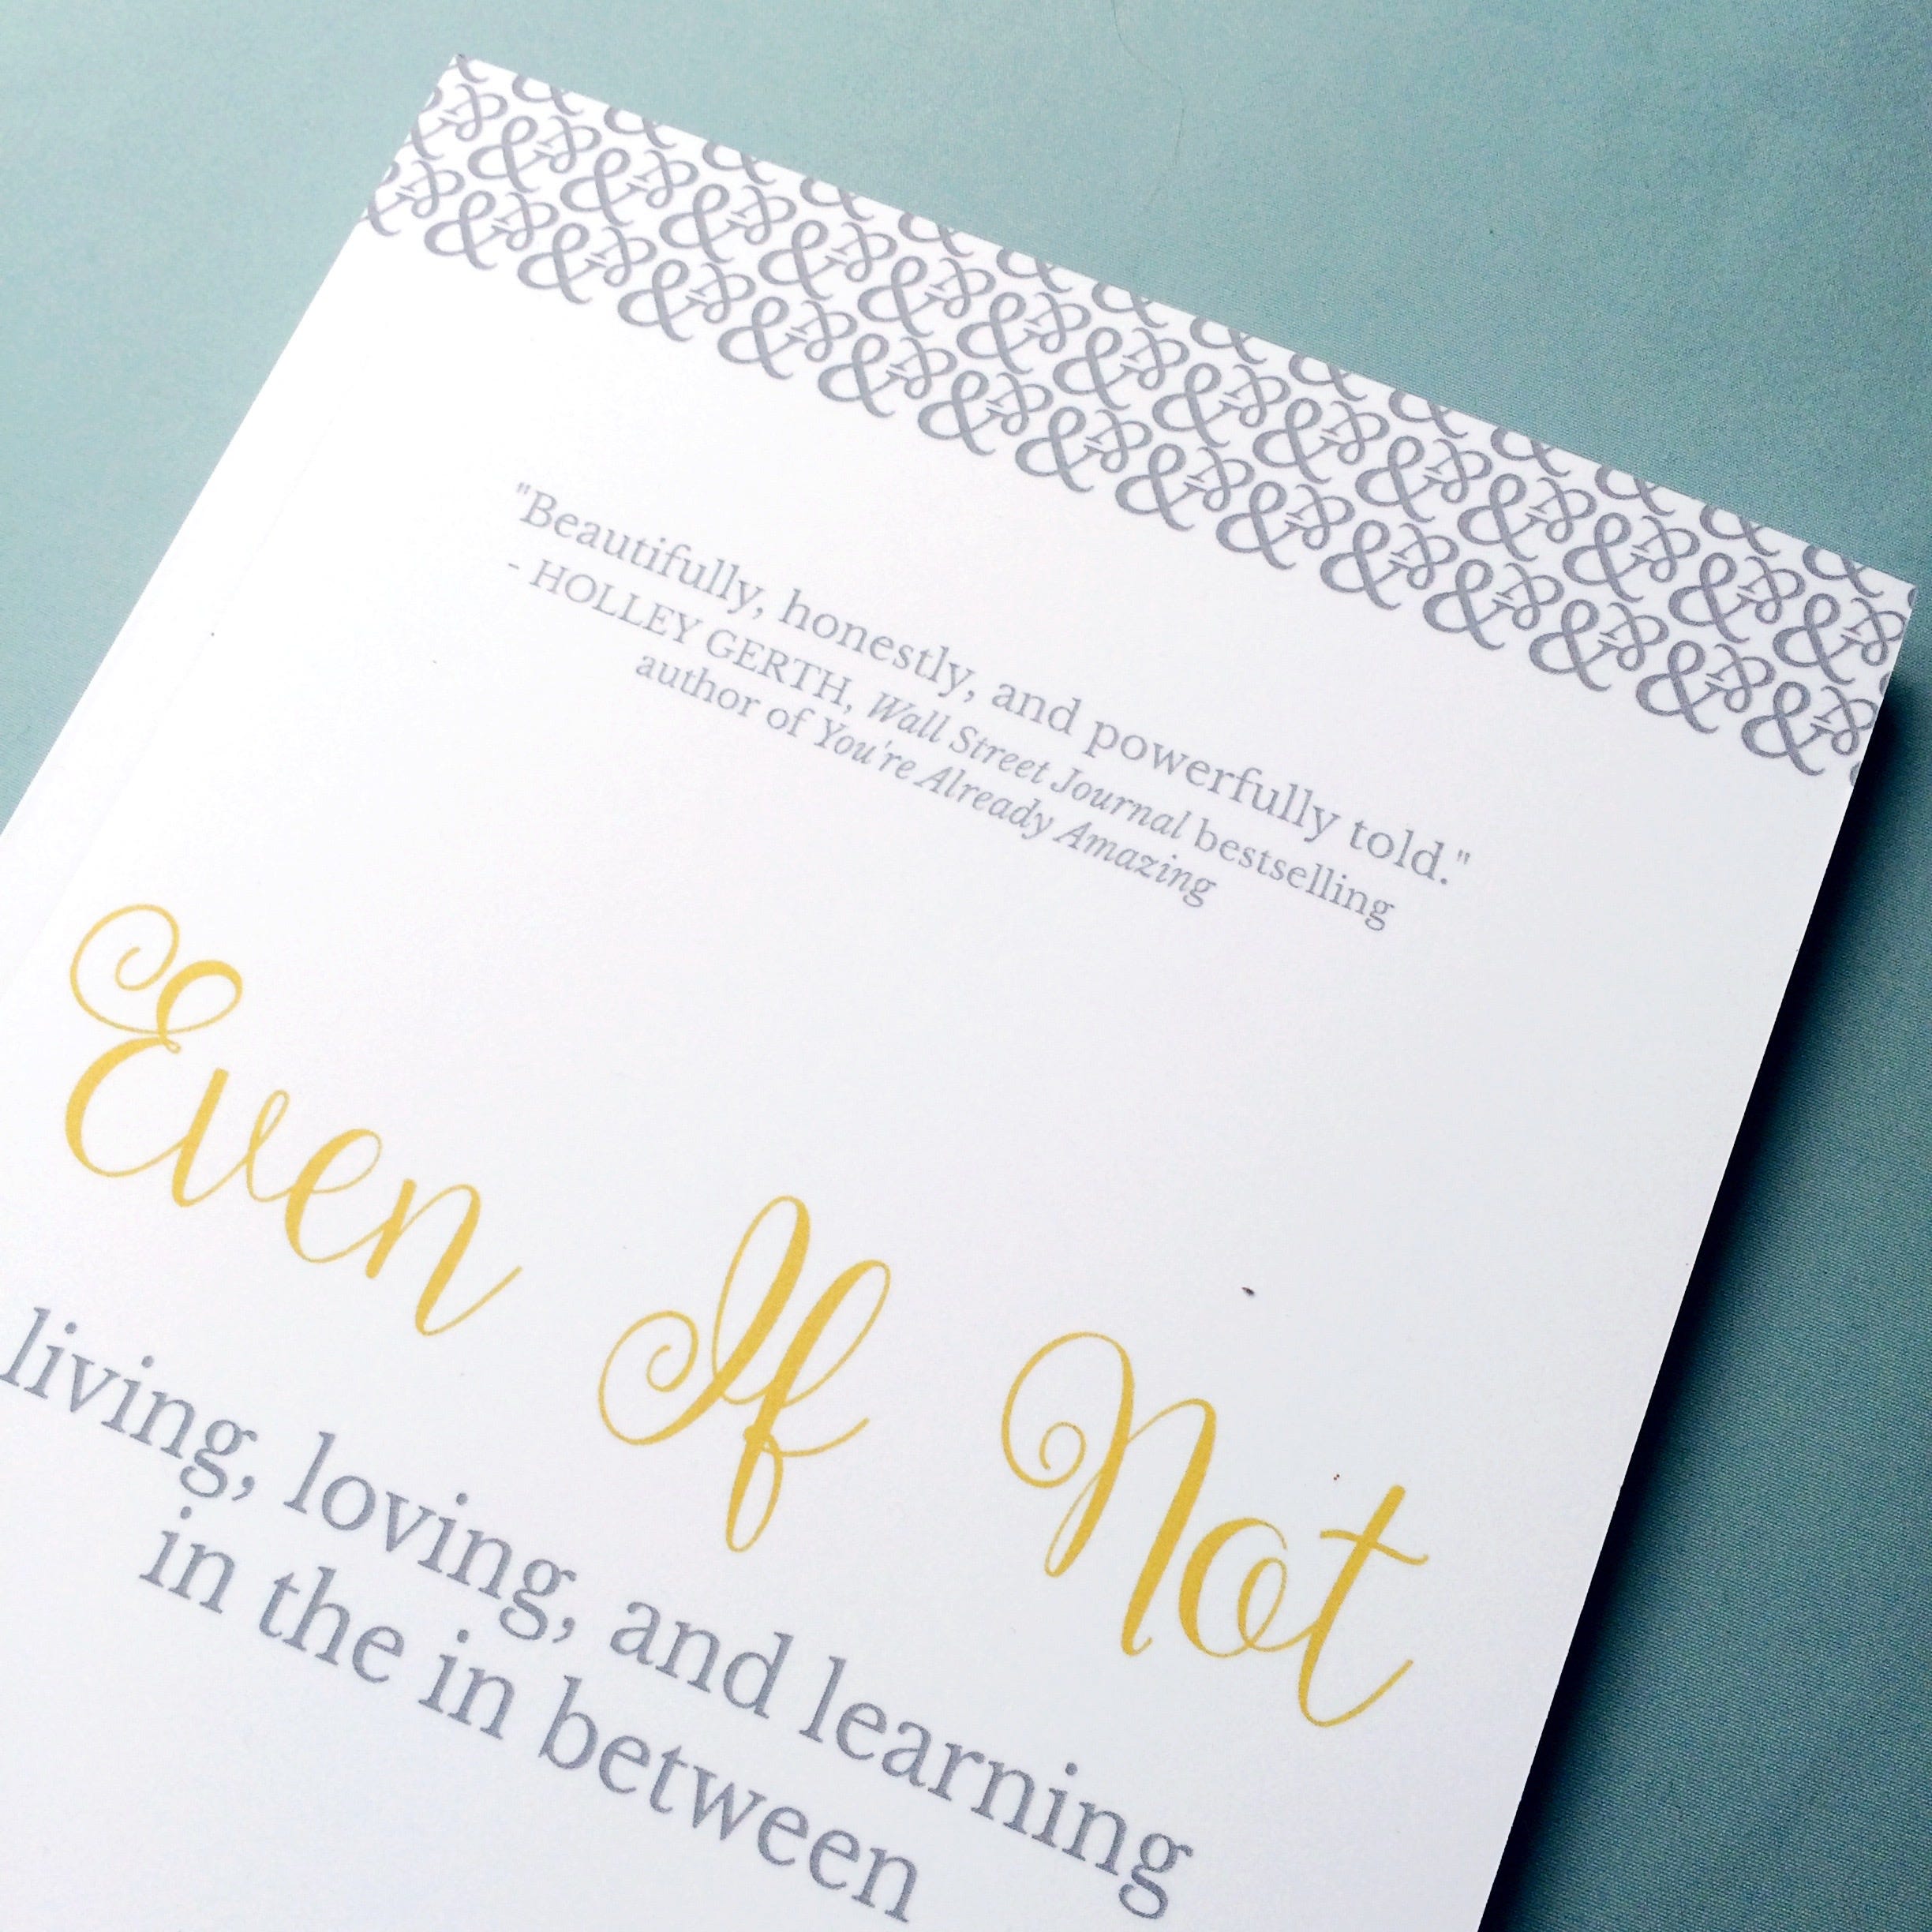 "Beautifully, honestly, and powerfully told."
- HOLLEY GERTH, Wall Street Journal bestselling
author of You're Already Amazing
Even If Not
living, loving, and learning
in the in between